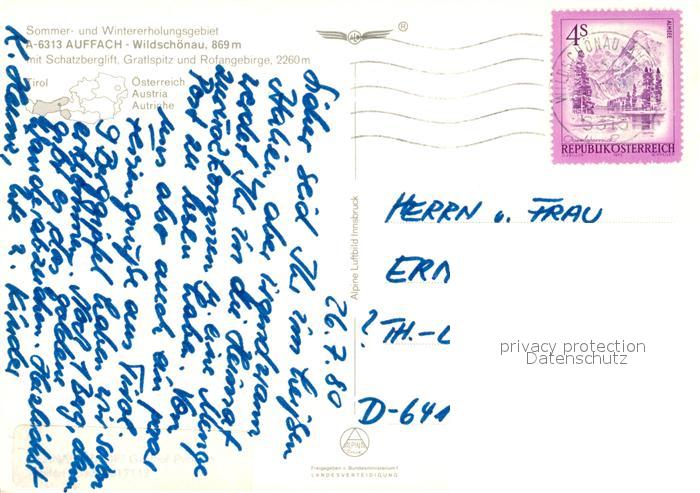 Sommer- und Wintererholungsgebiet
A-6313 AUFFACH - Wildschönau, 869 m
mit Schatzberglift, Gratlspitz und Rofangebirge, 2260 m
Tirol
Österreich
Austria
Autriche
®
4S
ALMSEE
REPUBLIK ÖSTERREICH
26.7.80
Sicher seid Ihr im heißen
Italien, aber irgendwann
werdet Ihr in die Heimat
zurückkommen u. eine Menge
Post zu lesen haben. Von
uns also auch ein paar
Feriengrüße aus Tirol.
9 Berggipfel haben wir schon
erklommen. Noch 1 Berg, dann
gibt es das goldene
Wanderabzeichen. Herzlichst
K. Helm, Ilse u. Kinder
Alpine Luftbild Innsbruck
HERRN u. FRAU
ER
? TH.-
D-641
privacy protection
Datenschutz
ALPINE
Freigegeben v. Bundesministerium f.
LANDESVERTEIDIGUNG